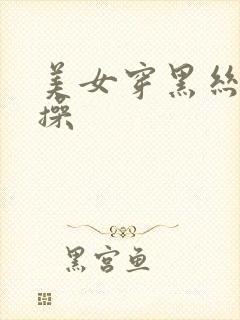 美女穿黑絲
操
黑宫鱼